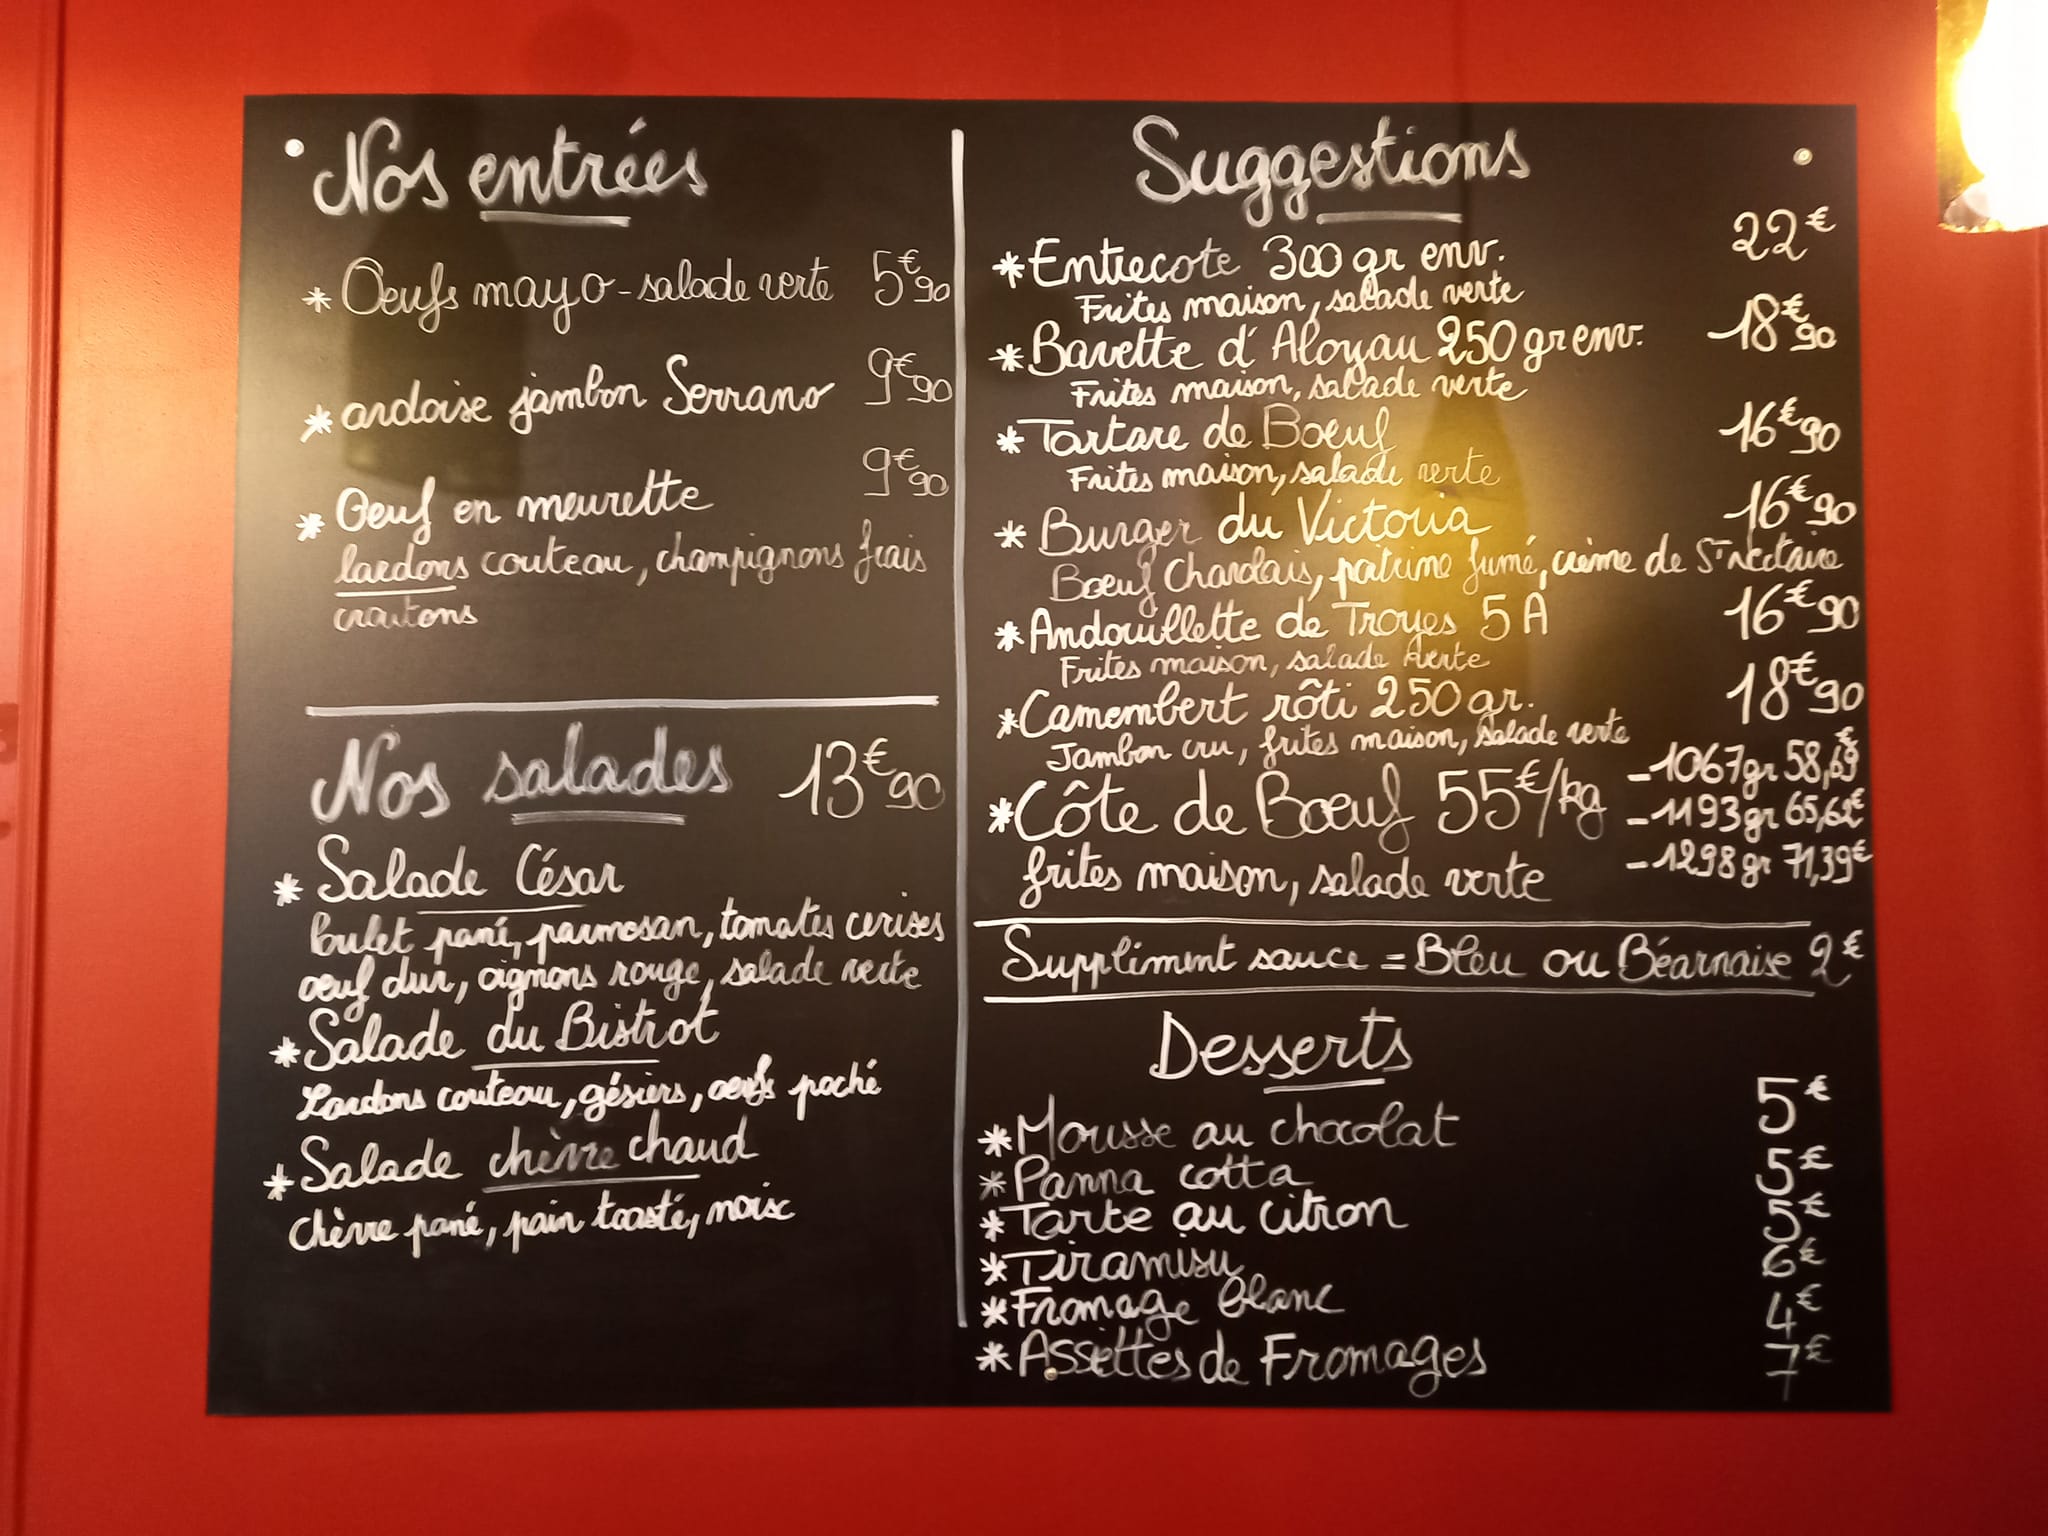 Nos entrées
* Oeufs mayo - salade verte 5€90
* ardoise jambon Serrano 9€90
* Oeuf en meurette 9€90
lardons couteau, champignons frais
croutons
Nos salades 13€90
* Salade César
Poulet pané, parmesan, tomates cerises
oeuf dur, oignons rouge, salade verte
* Salade du Bistrot
Lardons couteau, gésiers, oeufs poché
* Salade chèvre chaud
Chèvre pané, pain toasté, noix
Suggestions
* Entrecote 300 gr env. 22€
Frites maison, salade verte
* Bavette d'Aloyau 250 gr env. 18€90
Frites maison, salade verte
* Tartare de Boeuf 16€90
Frites maison, salade verte
* Burger du Victoria 16€90
Boeuf Charolais, poitrine fumé, crème de St Nectaire
* Andouillette de Troyes 5 A 16€90
Frites maison, salade verte
* Camembert rôti 250 gr. 18€90
Jambon cru, frites maison, salade verte
* Côte de Boeuf 55€/kg
frites maison, salade verte
- 1067 gr 58,69€
- 1193 gr 65,62€
- 1298 gr 71,39€
Supplément sauce = Bleu ou Béarnaise 2€
Desserts
* Mousse au chocolat 5€
* Panna cotta 5€
* Tarte au citron 5€
* Tiramisu 6€
* Fromage blanc 4€
* Assiettes de Fromages 7€